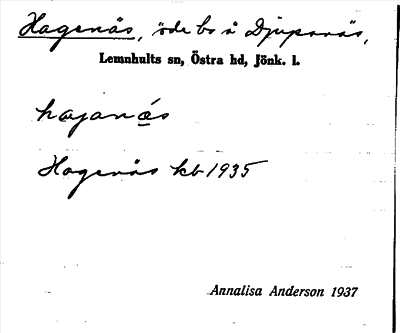 Hagenäs, öde bs å Djupsnäs,
Lemnhults sn, Östra hd, Jönk. l.
haganǻs
Hagenäs kb 1935
Annalisa Anderson 1937